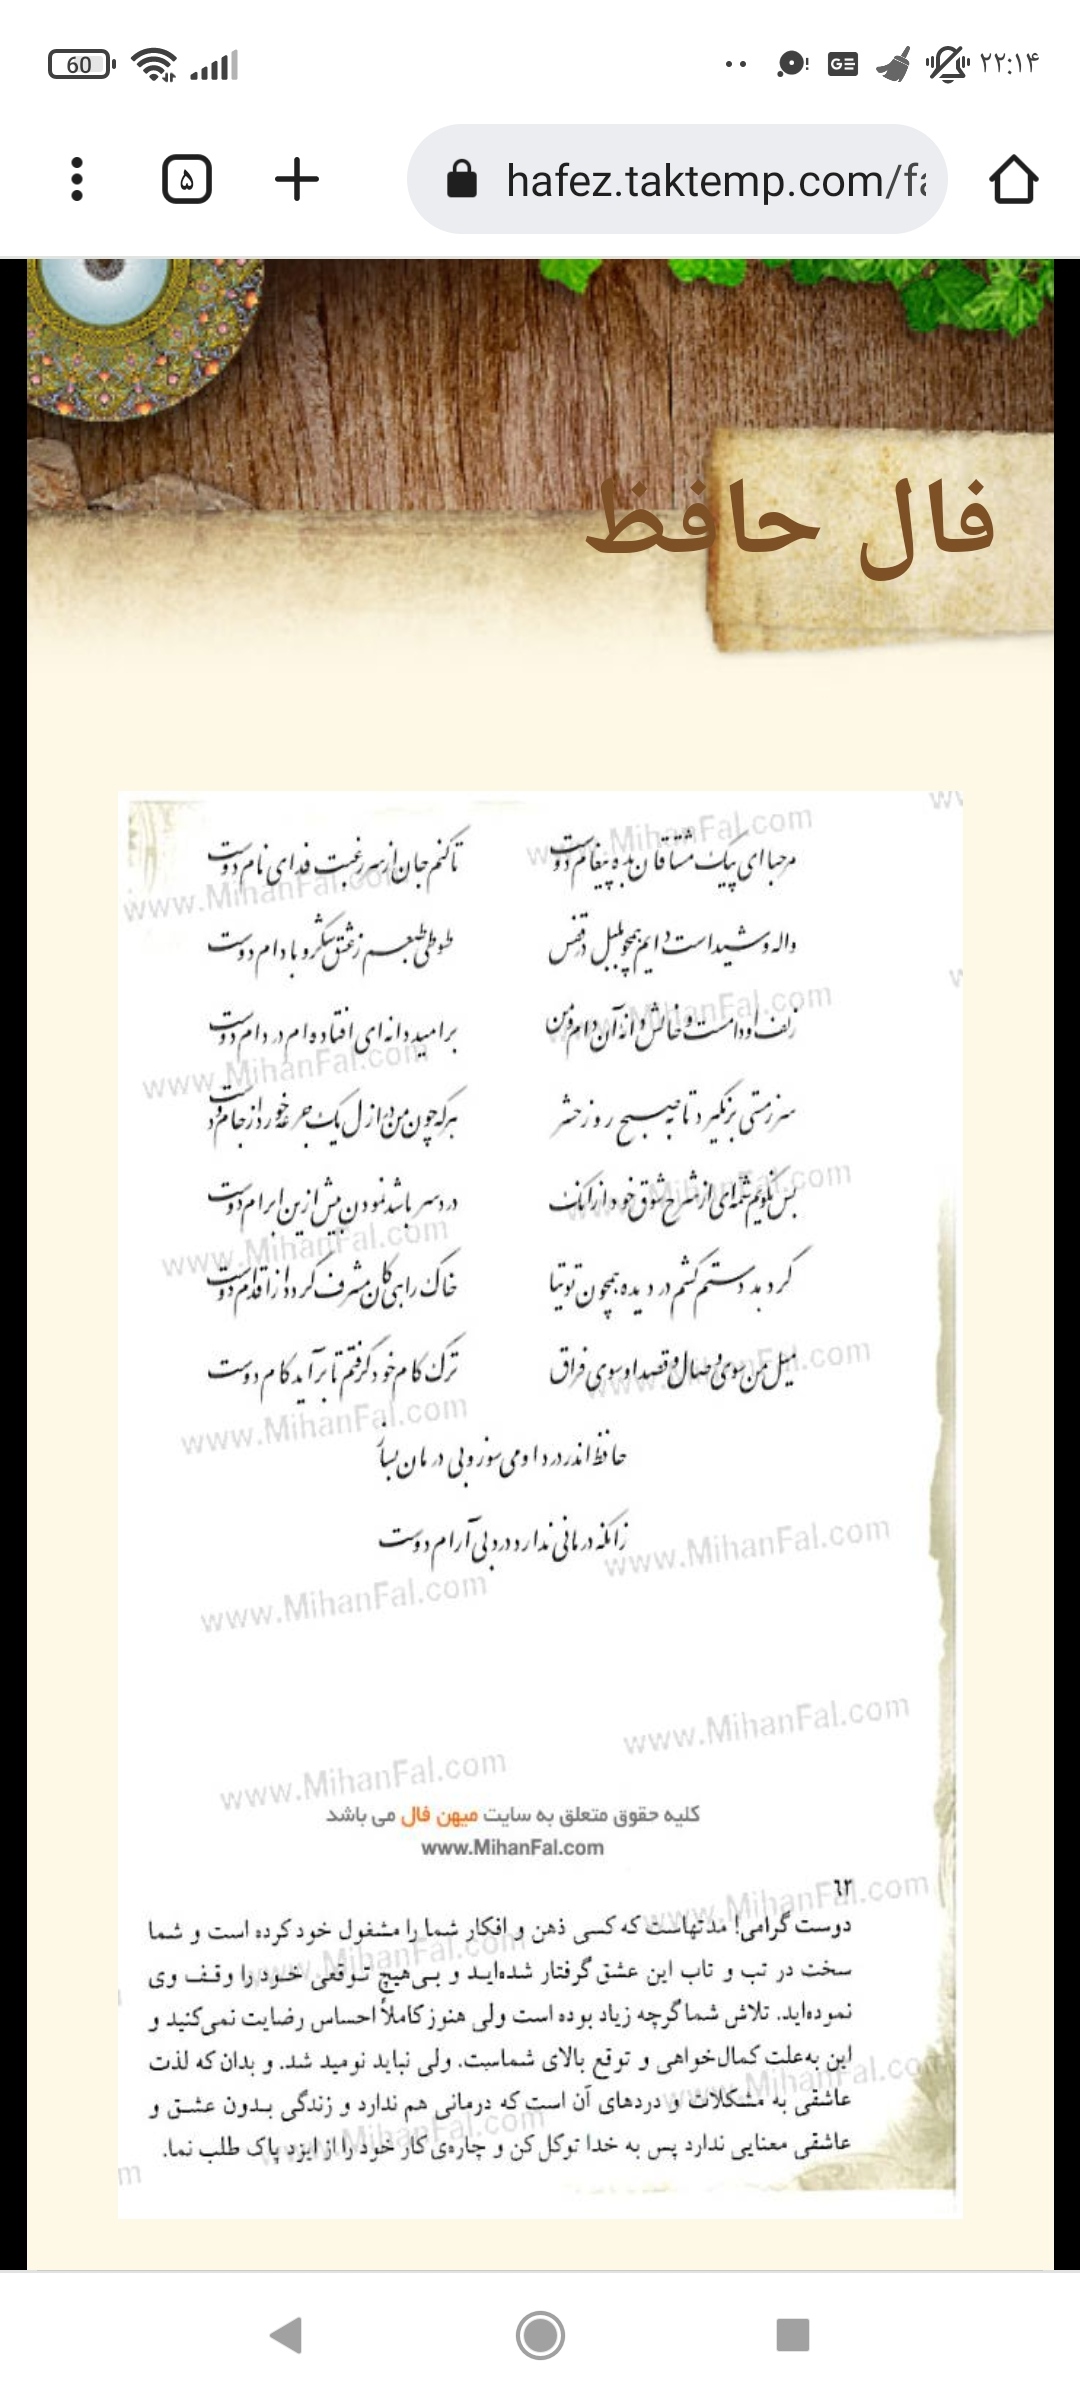 60
۲۲:۱۴
۵
hafez.taktemp.com/fa
فال حافظ
مرحبا ای پیک مشتاقان بده پیغام دوست
تا کنم جان از سر رغبت فدای نام دوست
واله و شیداست دایم همچو بلبل در قفس
طوطی طبعم ز عشق شکر و بادام دوست
زلف او دامست و خالش دانه آن دام و من
بر امید دانه ای افتاده ام در دام دوست
سر ز مستی بر نگیرد تا به صبح روز حشر
هر که چون من در ازل یک جرعه خورد از جام دوست
بس نگویم شمه ای از شرح شوق خود از آنک
درد سر باشد نمودن بیش ازین ابرام دوست
گر دهد دستم کشم در دیده همچون توتیا
خاک راهی کان مشرف گردد از اقدام دوست
میل من سوی وصال و قصد او سوی فراق
ترک کام خود گرفتم تا برآید کام دوست
حافظ اندر درد او می سوز و بی درمان بساز
زانکه درمانی ندارد درد بی آرام دوست
کلیه حقوق متعلق به سایت میهن فال می باشد
www.MihanFal.com
٦٢
دوست گرامی! مدتهاست که کسی ذهن و افکار شما را مشغول خود کرده است و شما
سخت در تب و تاب این عشق گرفتار شده‌اید و بی‌هیچ توقعی خود را وقف وی
نموده‌اید. تلاش شما گرچه زیاد بوده است ولی هنوز کاملاً احساس رضایت نمی‌کنید و
این به‌علت کمال‌خواهی و توقع بالای شماست. ولی نباید نومید شد. و بدان که لذت
عاشقی به مشکلات و دردهای آن است که درمانی هم ندارد و زندگی بدون عشق و
عاشقی معنایی ندارد پس به خدا توکل کن و چاره‌ی کار خود را از ایزد پاک طلب نما.